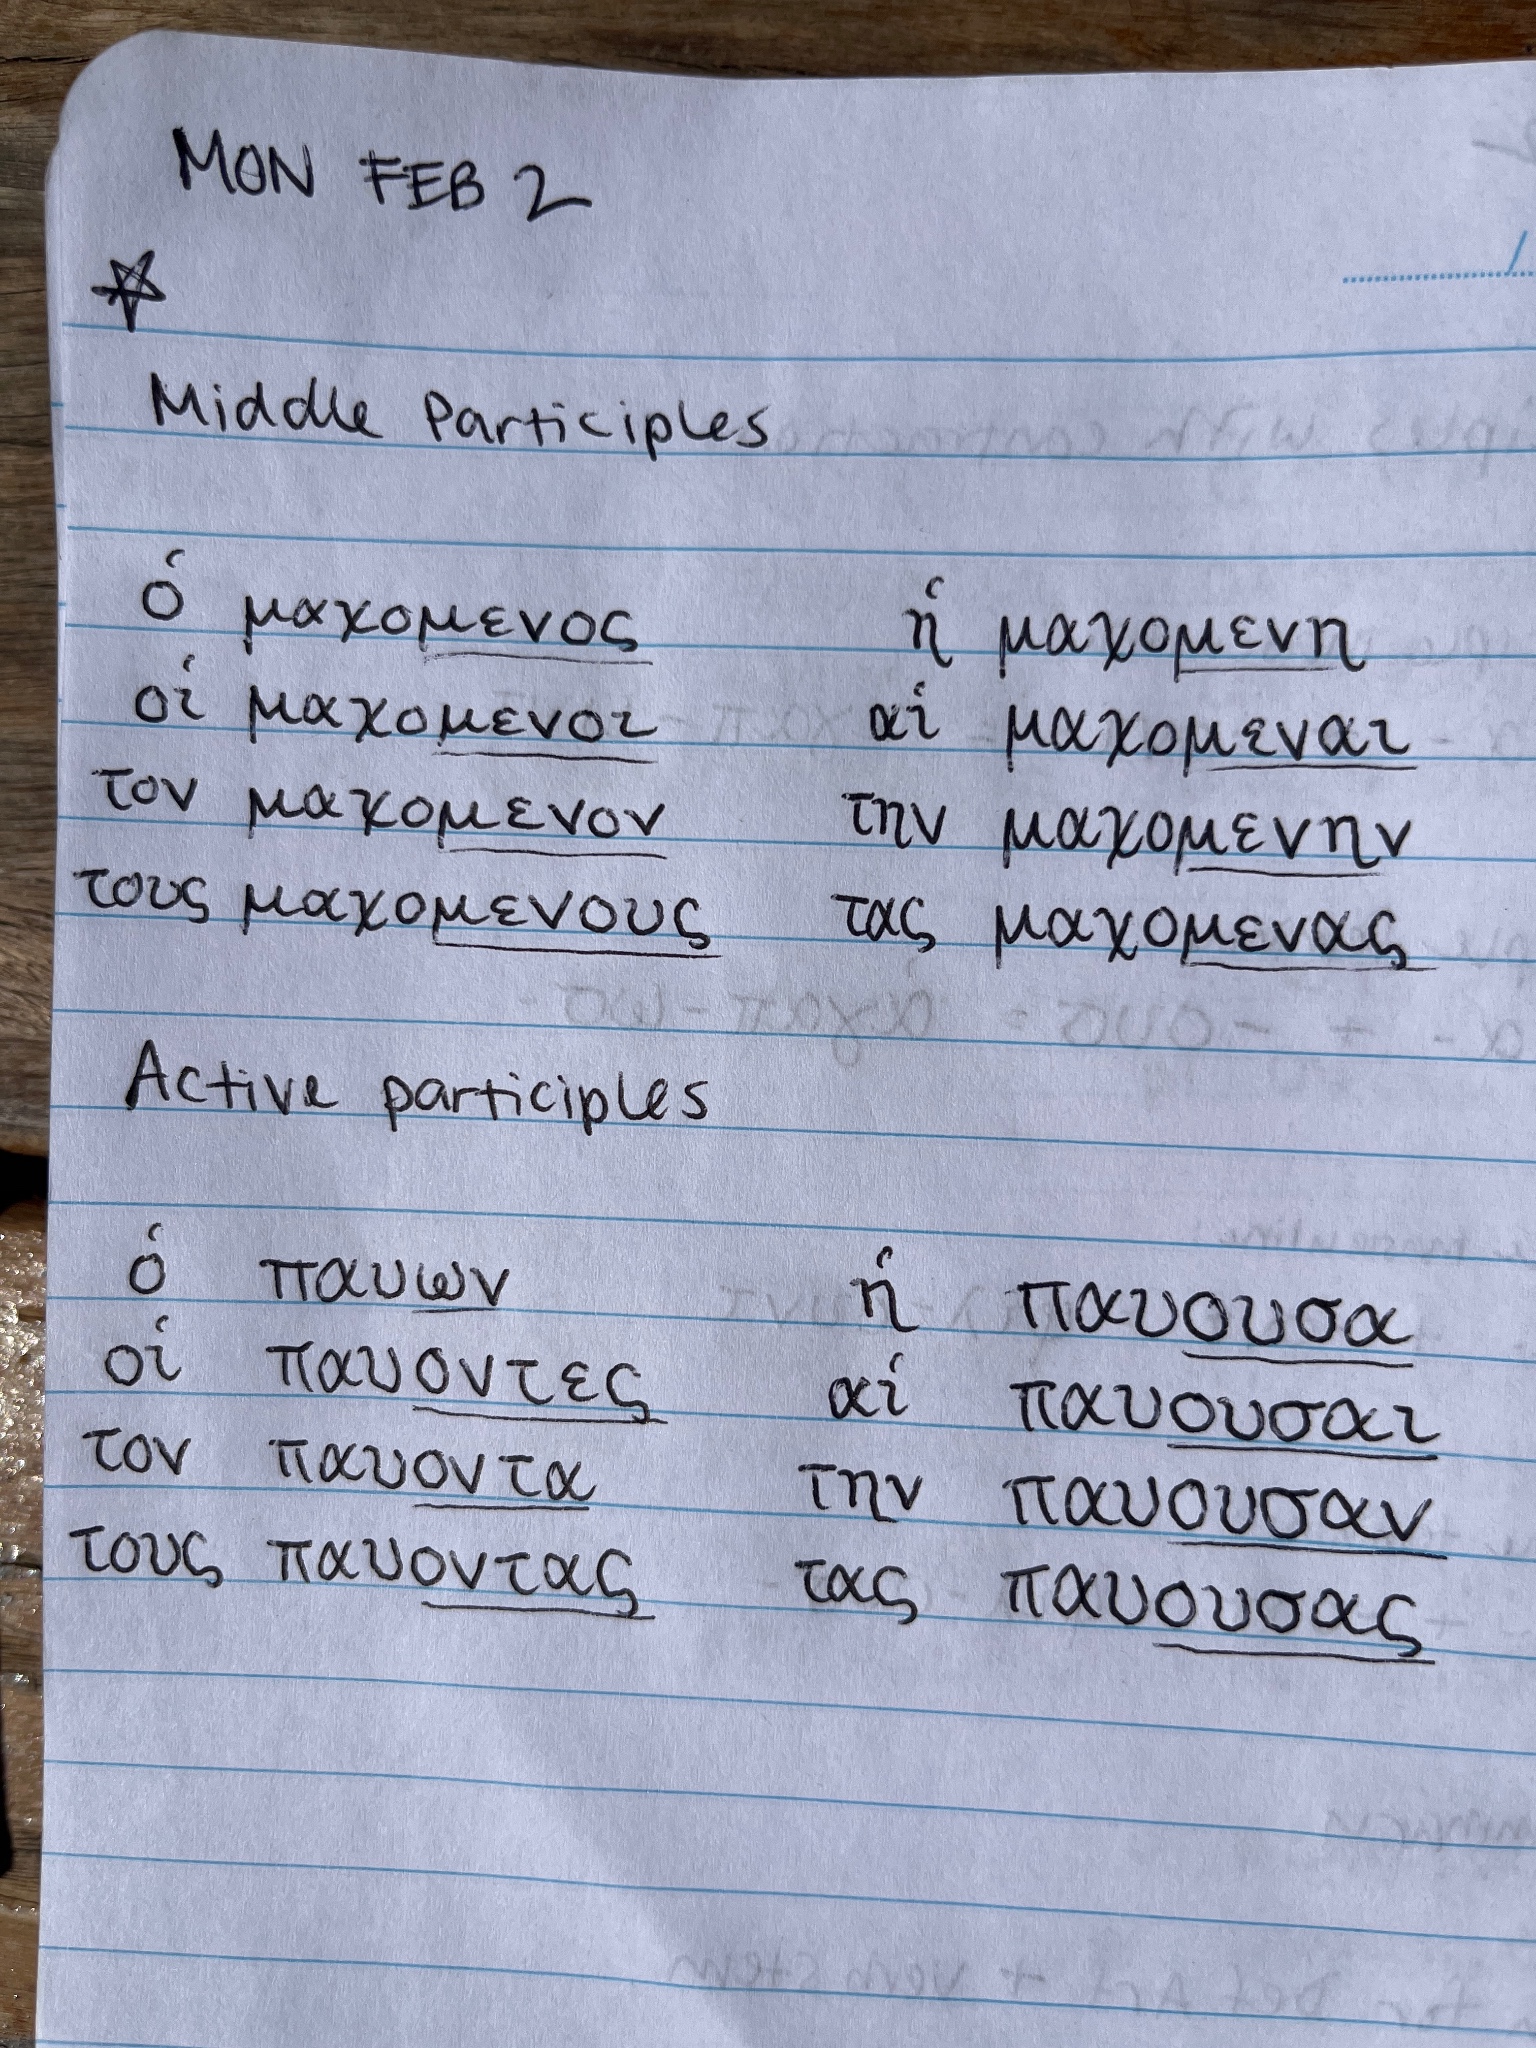 MON FEB 2
Middle Participles
ὁ μαχομενος ἡ μαχομενη
οἱ μαχομενοι αἱ μαχομεναι
τον μαχομενον την μαχομενην
τους μαχομενους τας μαχομενας
Active participles
ὁ παυων ἡ παυουσα
οἱ παυοντες αἱ παυουσαι
τον παυοντα την παυουσαν
τους παυοντας τας παυουσας